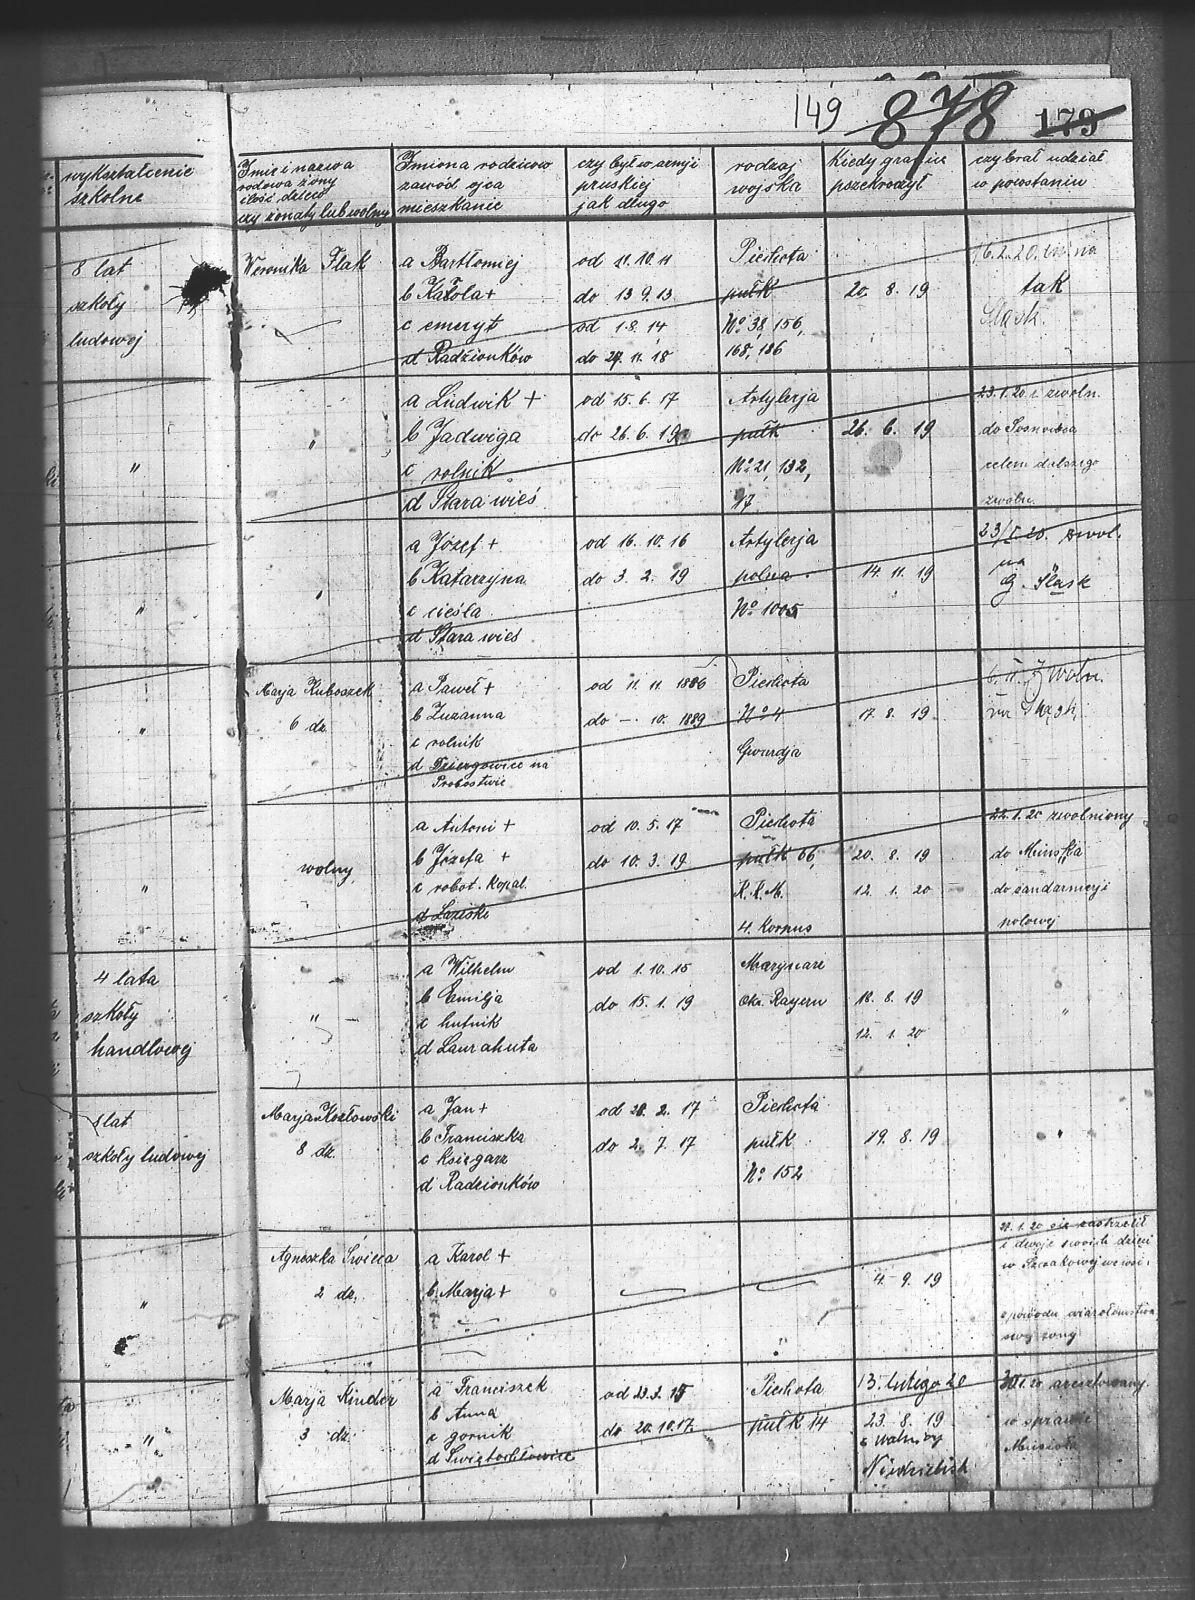 149 878 179
wykształcenie
szkolne
Imię i nazwa
rodowa żony
ilość dzieci
czy żonaty lub wolny
Imiona rodziców
zawód ojca
mieszkanie
czy był w armji
pruskiej
jak długo
rodzaj
wojska
Kiedy granicę
przekroczył
czy brał udział
w powstaniu
8 lat
szkoły
ludowej
Weronika Flak
a Bartłomiej
b Karola +
c emeryt
d Radzionków
do 13 9. 13
od 1. 8. 14
do 27. 11. 18
Piechota
pułk
No 38, 156,
168, 186
20. 8. 19
16. 2. 20. na
tak
Śląsk.
"
"
a Ludwik +
b Jadwiga
c rolnik
d Stara wieś
od 15. 6. 17
do 26. 6. 19
Artylerja
pułk
No 21, 132,
17
26. 6. 19
23. 1. 20. zwoln.
do Sosnowca
celem dalszego
zwoln.
"
"
a Józef +
b Katarzyna
c cieśla
d Stara wieś
od 16. 10. 16
do 3. 2. 19
Artylerja
polna
No 1005
14. 11. 19
23/I. 20. zwol.
na
G. Śląsk
"
Marja Kuboszek
6 dz.
a Paweł +
b Zuzanna
c rolnik
d na
Probostwie
od 11. 11. 1886
do — . 10. 1889
Piechota
No 4
Gwardja
17. 8. 19
6. II. Zwoln.
na Śląsk
"
wolny
a Antoni +
b Józefa +
c robot. kopal.
d Łaziski
od 10. 5. 17
do 10. 3. 19
Piechota
pułk 66,
K. K. M.
4. Korpus
20. 8. 19
12. 1. 20
22. 1. 20 zwolniony
do Mińska
do żandarmerji
polowej
4 lata
szkoły
handlowej
" —
a Wilhelm
b Emilja
c hutnik
d Laurahuta
od 1. 10. 15
do 15. 1. 19
Marynarz
okr. Bayern
18. 8. 19
12. 1. 20
"
8 lat
szkoły ludowej
Marja Kozłowski
8 dz.
a Jan +
b Franciszka
c księgarz
d Radzionków
od 28. 2. 17
do 2. 7. 17
Piechota
pułk
No 152
19. 8. 19
"
"
Agnieszka Święca
2 dz.
a Karol +
b Marja +
4. 9. 19
21. 1. 20 się zastrzelił
i dwoje swoich dzieci
w Szczakowej we wsi
z powodu wiarołomstwa
swej żony
"
Marja Kinder
3 dz.
a Franciszek
b Anna
c gornik
d Świętochłowice
od 23. 3. 15
do 20. 10. 17.
Piechota
pułk 14
13. lutego 20
23. 8. 19
z wolny
30. I. 20 aresztowany
w sprawie
Musioła